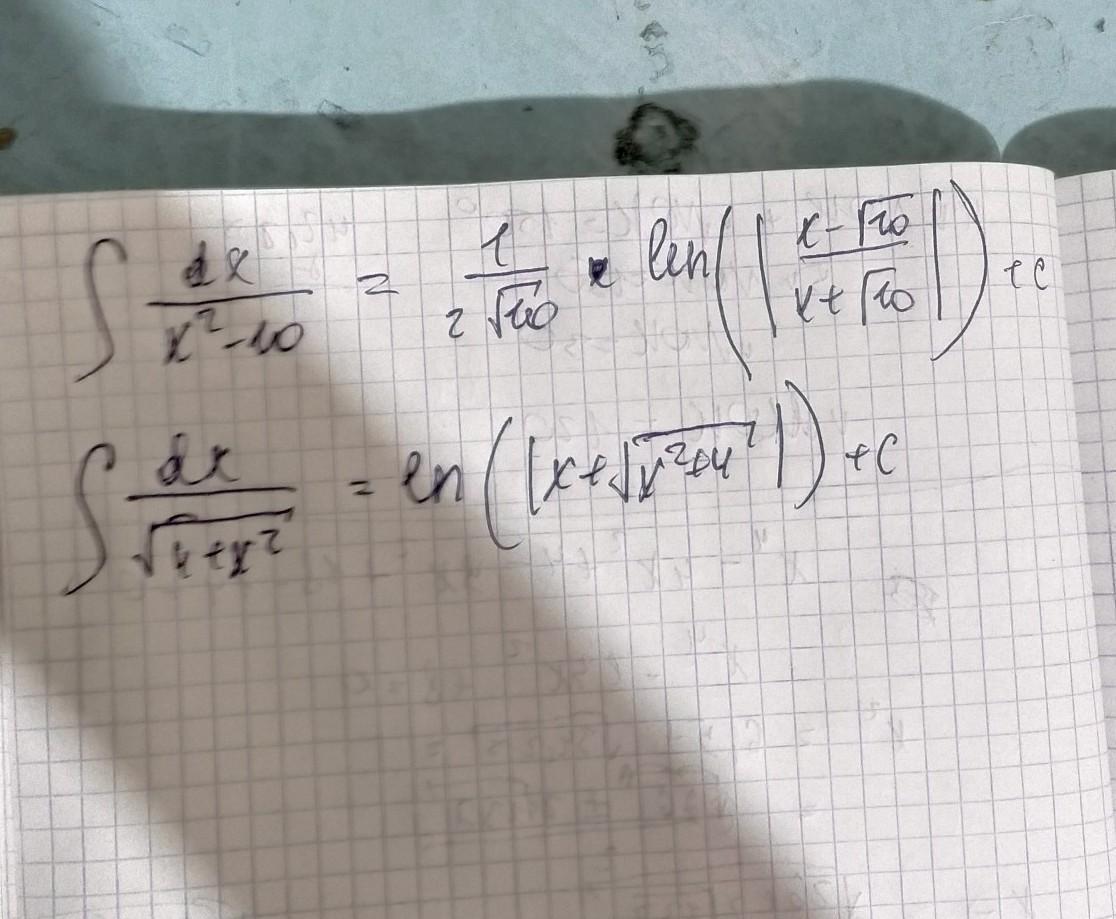 ∫ dx/(x² - 10) = 1/(2√10) · ln(|(x - √10)/(x + √10)|) + c
∫ dx/√(4 + x²) = ln(|x + √(x² + 4)|) + C